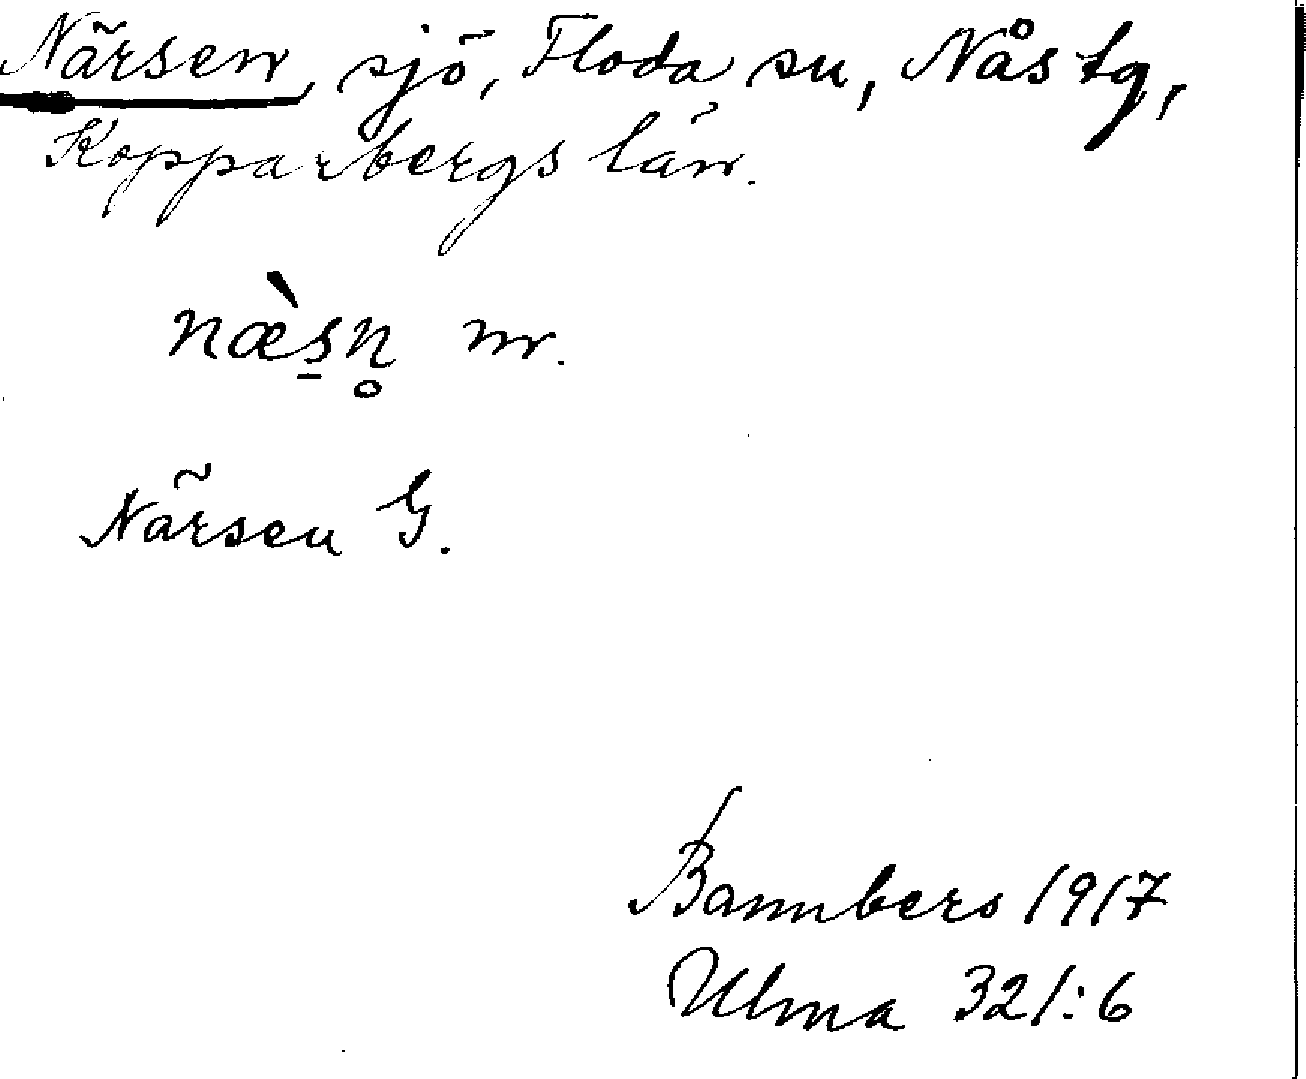 Närsen, sjö, Floda sn, Nås tg,
Kopparbergs län.
næ̀s̱n̥ m.
Närsen G.
Bannbers 1917
Ulma 321:6